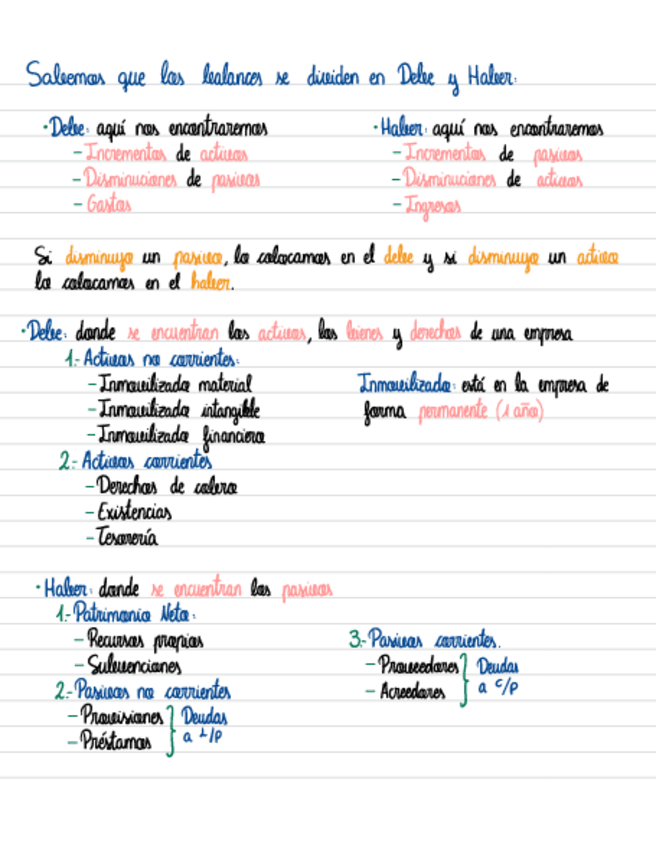 Sabemos que los balances se dividen en Debe y Haber:
· Debe: aquí nos encontraremos
- Incrementos de activos
- Disminuciones de pasivos
- Gastos
· Haber: aquí nos encontraremos
- Incrementos de pasivos
- Disminuciones de activos
- Ingresos
Si disminuye un pasivo, lo colocamos en el debe y si disminuye un activo
lo colocamos en el haber.
· Debe: donde se encuentran los activos, los bienes y derechos de una empresa
1.- Activos no corrientes:
- Inmovilizado material
- Inmovilizado intangible
- Inmovilizado financiero
Inmovilizado: está en la empresa de
forma permanente (1 año)
2.- Activos corrientes
- Derechos de cobro
- Existencias
- Tesorería
· Haber: donde se encuentran los pasivos
1.- Patrimonio Neto:
- Recursos propios
- Subvenciones
2.- Pasivos no corrientes
- Provisiones
- Préstamos
Deudas
a L/P
3.- Pasivos corrientes.
- Proveedores
- Acreedores
Deudas
a C/P